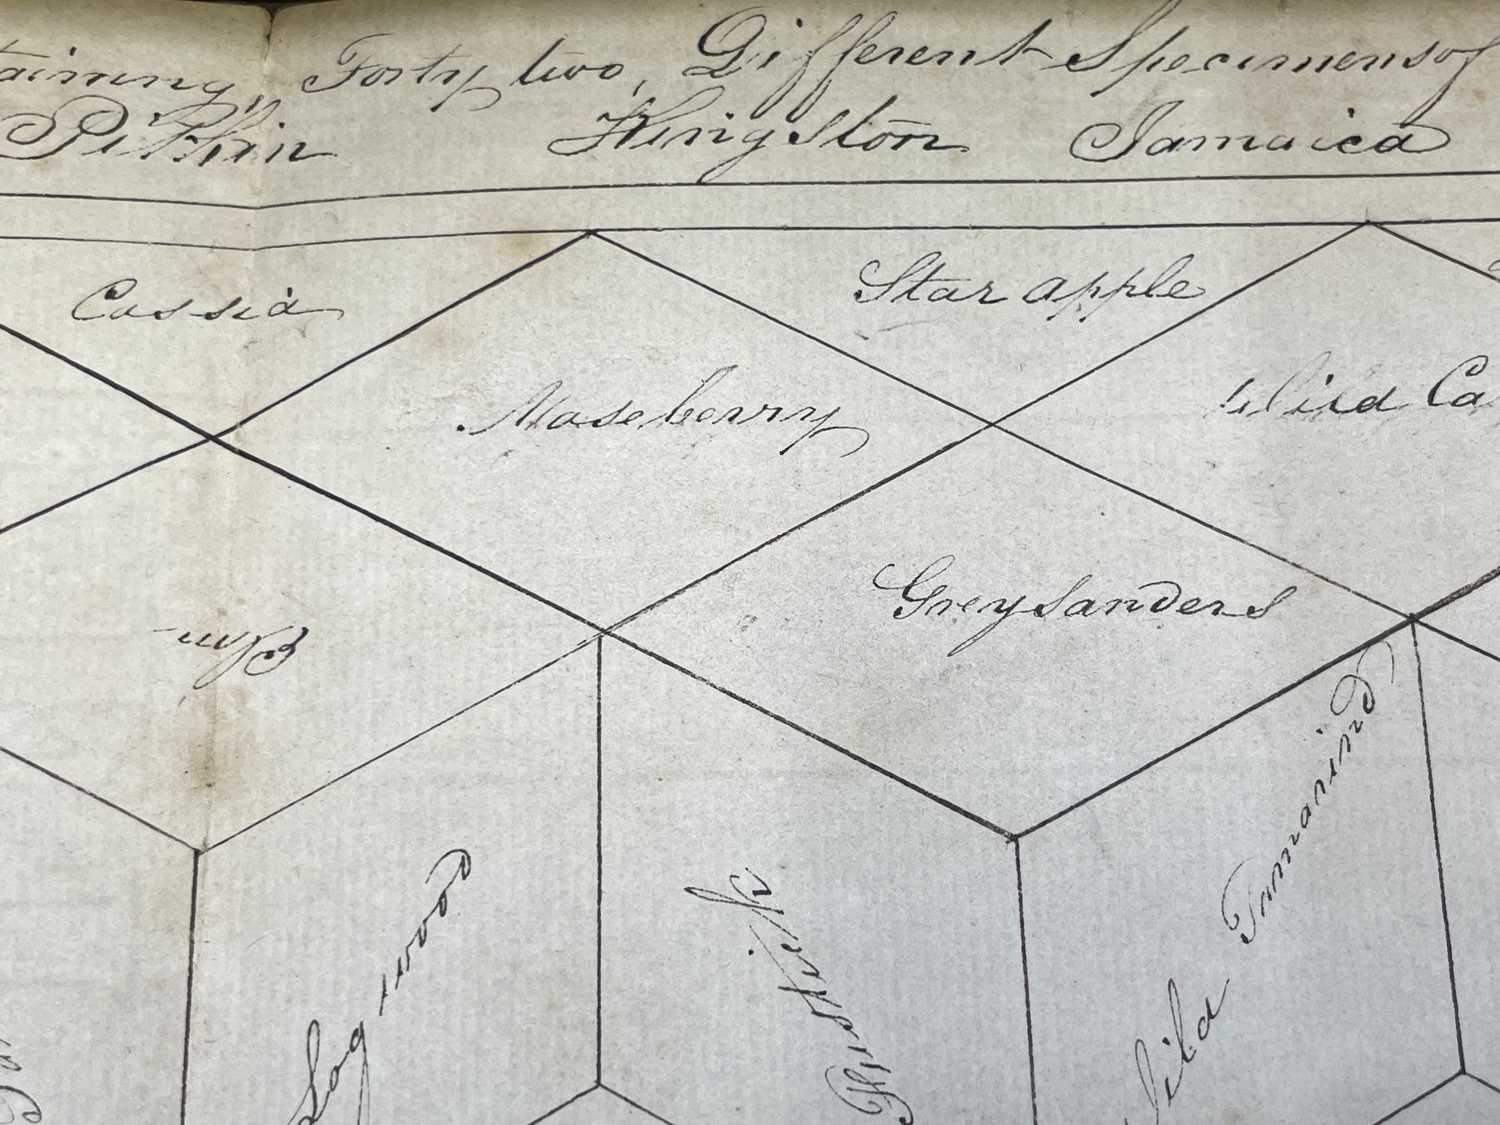 taining, Forty two, Different Specimens of
Pitkin Kingston Jamaica
Cassia
Star apple
Maseberry
Wild Ca
Grey Sanders
Wild Tamarind
Logwood
Fustick